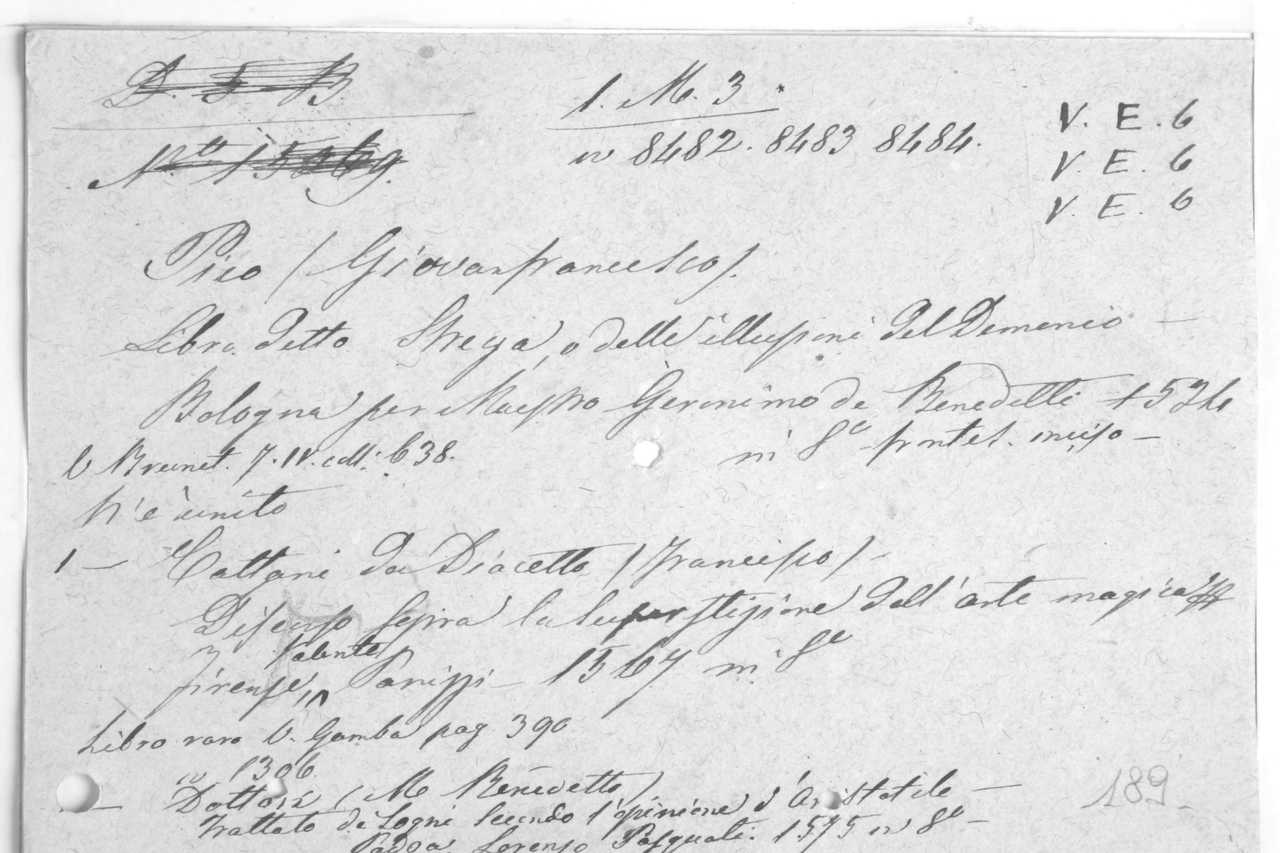 D. 5. B.
1. M. 3.
V. E. 6
Nto 15269.
n 8482. 8483 8484.
V. E. 6
V. E. 6
Pico (Giovanfrancesco).
Libro detto Strega, o delle illusioni del Demonio —
Bologna per Maestro Geronimo de Benedetti 1524
in 8o frontes. inciso —
V Brunet. T. IV. coll. 638.
N'è unito
1 — Cattani da Diacetto (Francesco) —
Discorso sopra la superstizione dell'arte magica
Valente
Firenze, Panizzi — 1567 in 8o
Libro raro V. Gamba pag 390
no 1306.
— Dottori (M Benedetto)
Trattato di Sogni secondo l'opinione d'Aristotile —
Padoa Lorenzo Pasquati. 1575 in 8o —
189